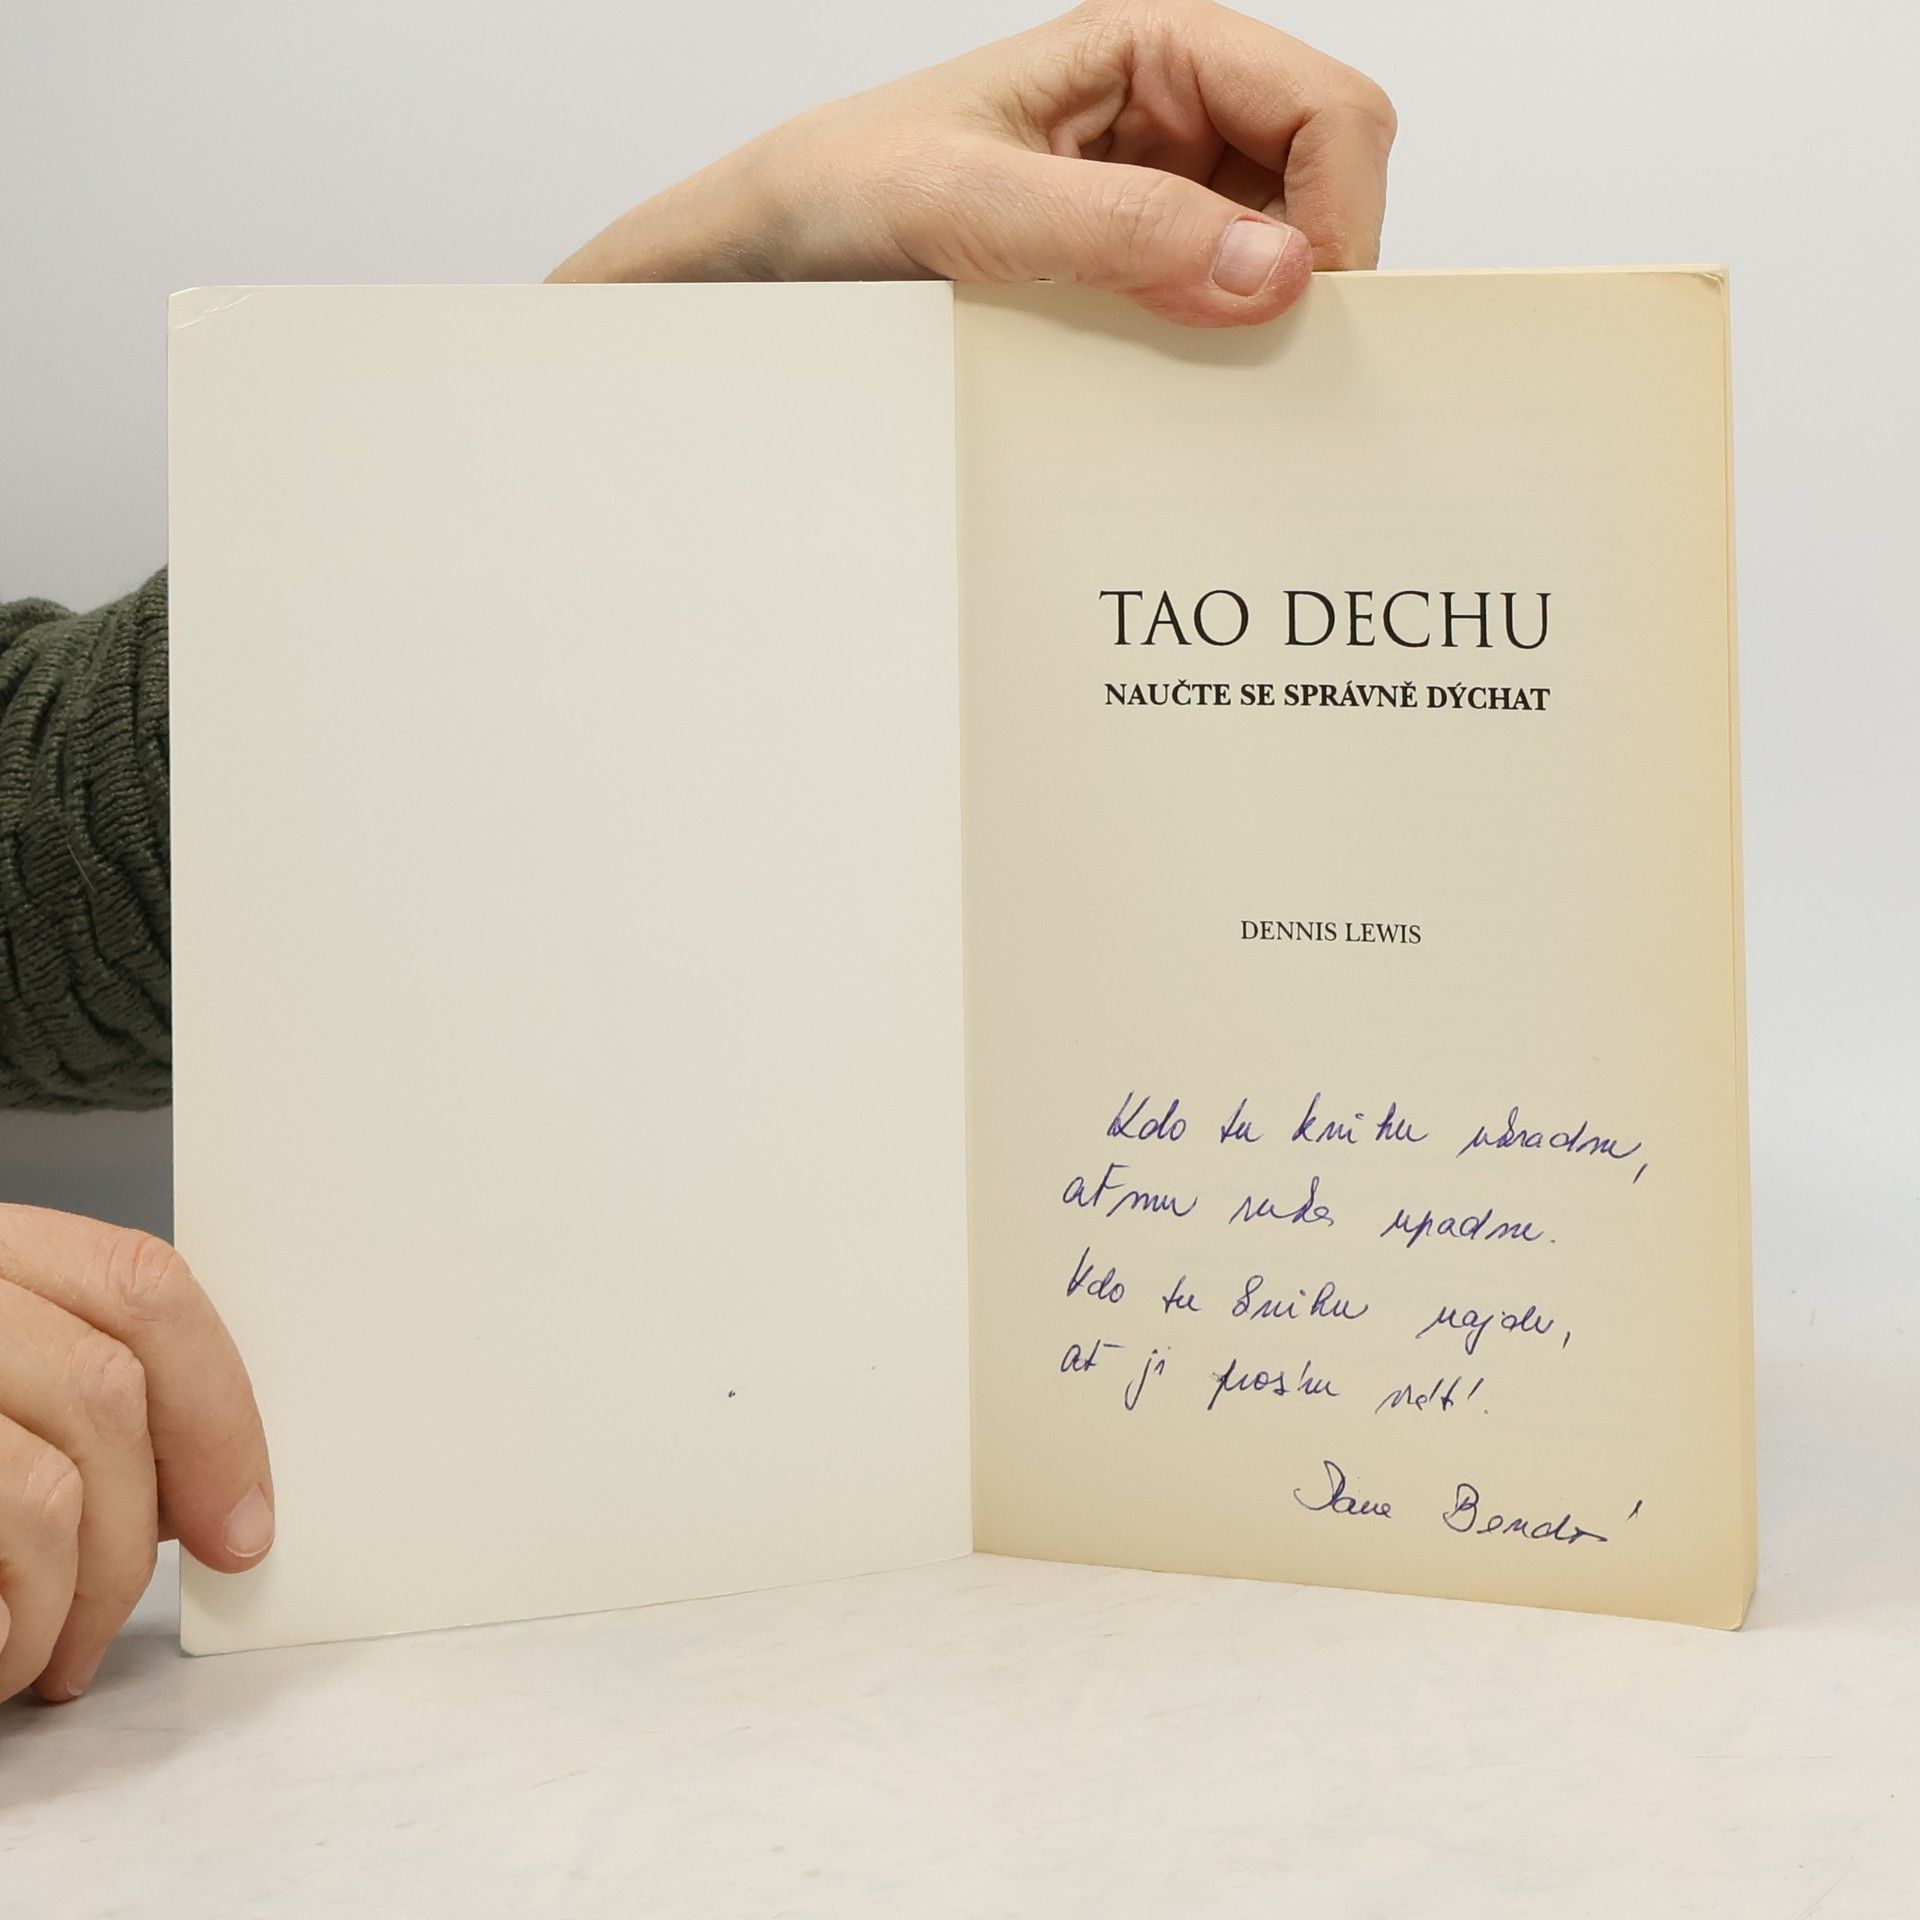 TAO DECHU
NAUČTE SE SPRÁVNĚ DÝCHAT
DENNIS LEWIS
Kdo tu knihu ukradne,
ať mu ruka upadne.
Kdo tu knihu najde,
ať ji prosím vrátí.